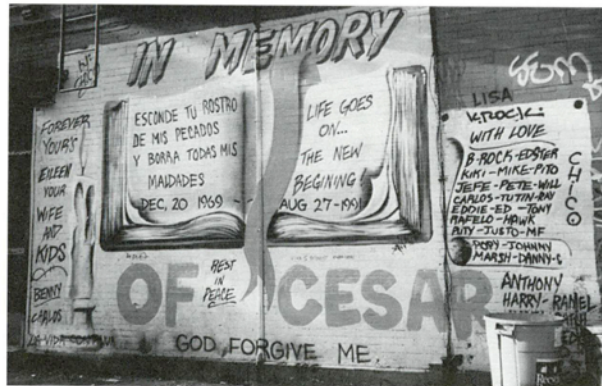 IN MEMORY
FOREVER
YOUR'S
EILEEN
YOUR
WIFE
AND
KIDS
BENNY
CARLOS
ESCONDE TU ROSTRO
DE MIS PECADOS
Y BORRA TODAS MIS
MALDADES
DEC, 20 1969 -
LIFE GOES
ON...
THE NEW
BEGINING!
AUG 27-1991
OF CESAR
REST
IN
PEACE
GOD, FORGIVE ME.
LISA
K-ROCK
WITH LOVE
B-ROCK-EDSTER
KIKI-MIKE-PITO
JEFE-PETE-WILL
CARLOS-TUTIN-RAY
EDDIE-ED-TONY
RAFELO-HAWK
PITY-JUSTO-MF
POPY-JOHNNY
MARSH-DANNY-G
CHICO
ANTHONY
HARRY-